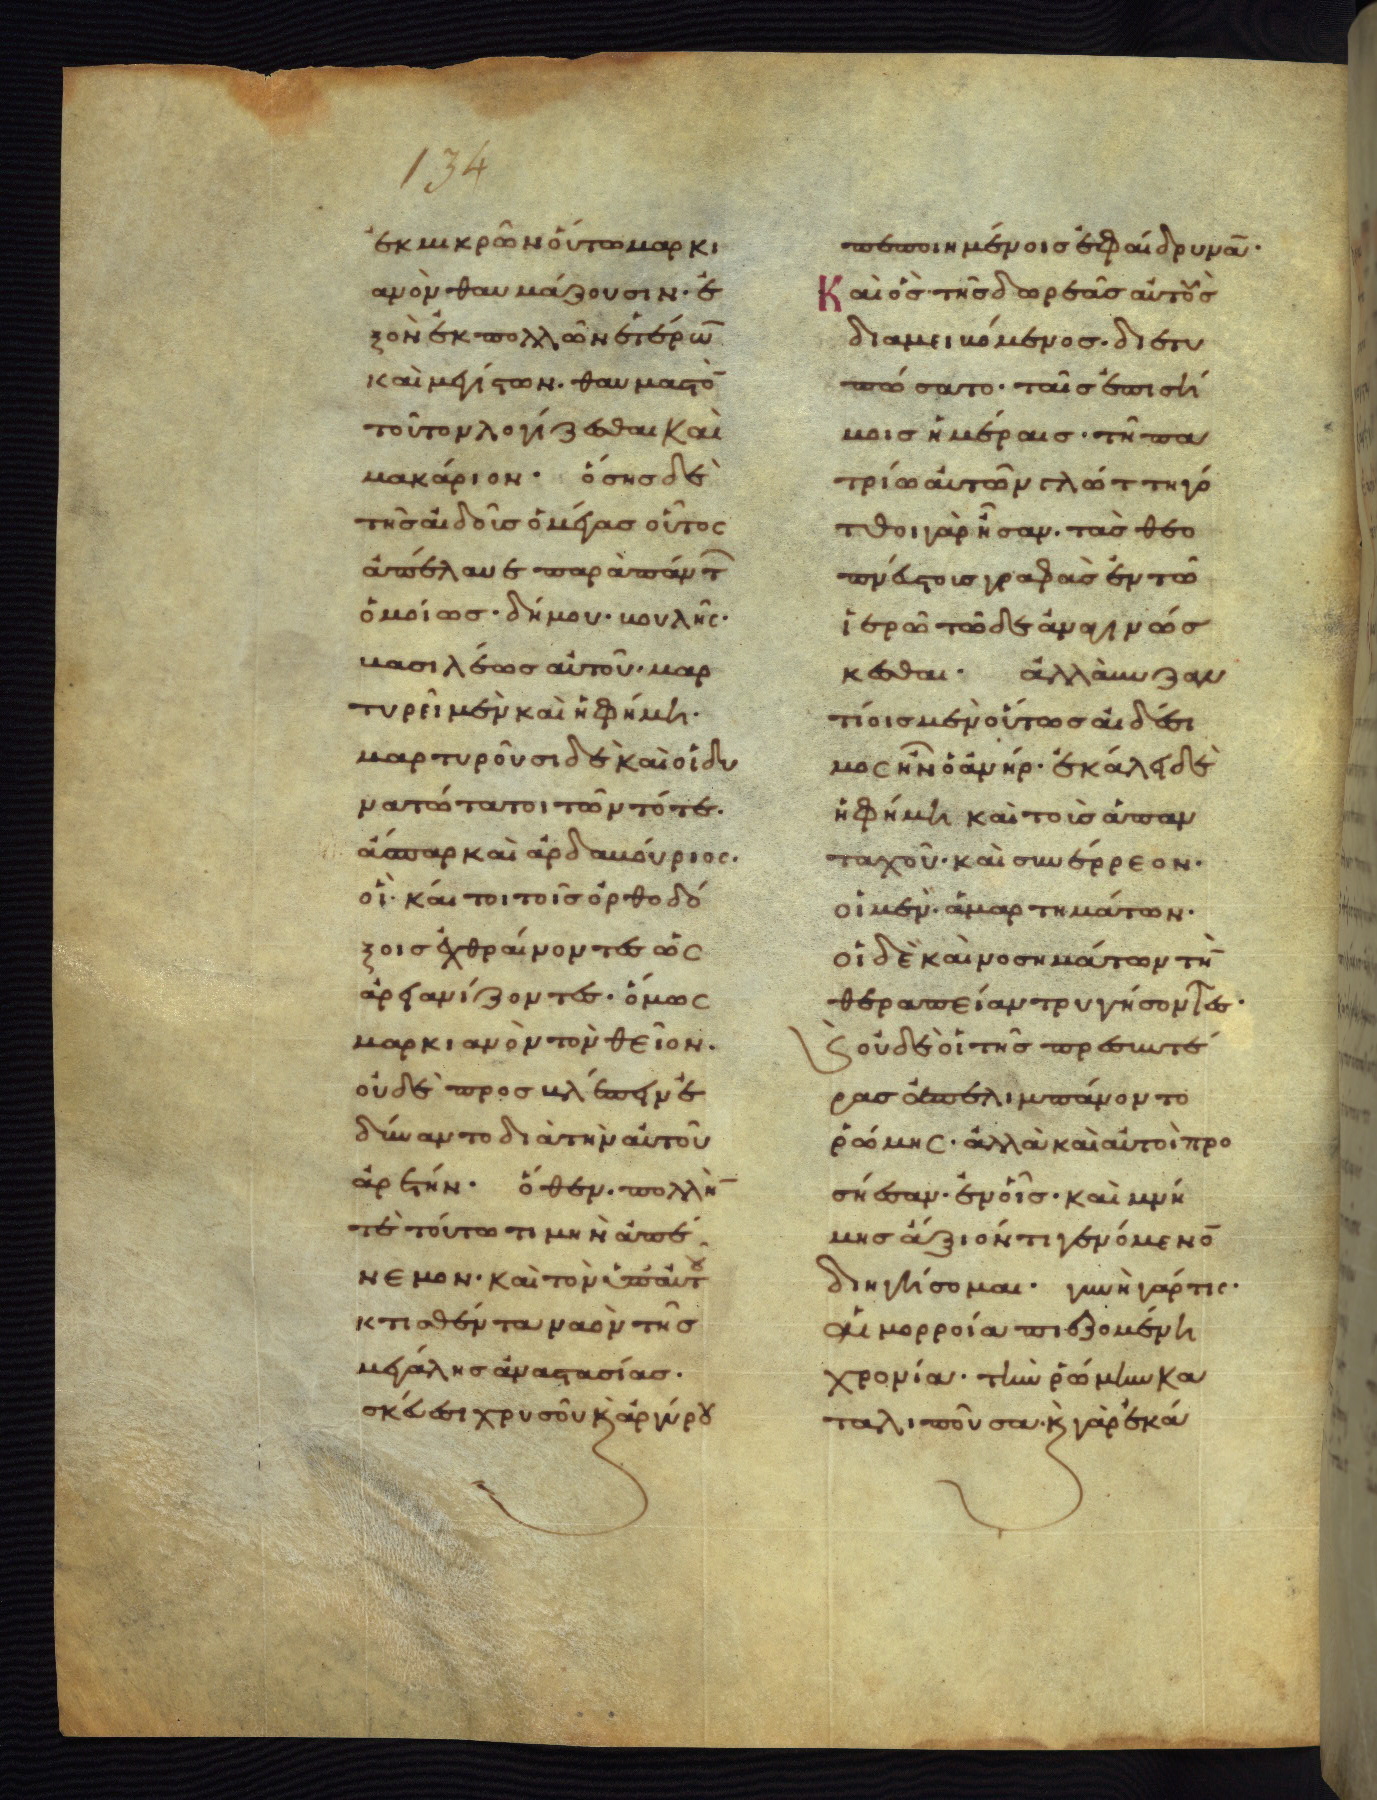 134
ἐκ μικρῶν οὕτω μαρκι
ανὸν θαυμάζουσιν· ἐ
ξὸν ἐκ πολλῶν ἑτέρω̅
καὶ μειζόνων· θαυμαστὸ̅
τοῦτον λογίζεσθαι καὶ
μακάριον· ὅσης δὲ
τῆς αἰδοῖς ὁ μέγας οὗτος
ἀπέλαυε παρὰ πάντ
ὁμοίως· δήμου· βουλῆς·
βασιλέως αὐτοῦ· μαρ
τυρεῖ μὲν καὶ ἡ φήμη·
μαρτυροῦσι δὲ καὶ οἱ δυ
νατώτατοι τῶν τότε·
ἄσπαρ καὶ ἀρδαβούριος·
οἳ· καίτοι τοῖς ὀρθοδό
ξοις ἐχθραίνοντες ὡς
ἀρειανίζοντες· ὅμως
μαρκιανὸν τὸν θεῖον·
οὐδὲ προσβλέπειν ἐ
δύναντο διὰ τὴν αὐτοῦ
ἀρετήν· ὅθεν· πολλὴ̅
τὲ τούτω τιμὴν ἀπέ
νεμον· καὶ τὸν ὑπ' αὐτοῦ
κτισθέντα ναὸν τῆς
μεγάλης ἀναστασίας·
σκεύεσι χρυσοῦ κ̀ ἀργύρου
πεποιημένοις ἐφαίδρυνα̅·
Καὶ ὃς τῆς δωρεᾶς αὐτοὺς
διαμειβόμενος· διετυ
πώσατο· ταῖς ἐπισή
μοις ἡμέραις· τῇ πα
τρίω αὐτῶν γλώττη γό
τθοι γὰρ ἦσαν· τὰς θεο
πνεύστοις γραφὰς ἐν τῶ
ἱερῶ τῶδε ἀναγινώσ
κεσθαι· ἀλλὰ βυζαν
τίοις μὲν οὕτως αἰδέσι
μος ἦν ὁ ἀνήρ· ἐκάλει δὲ
ἡ φήμη καὶ τοὺς ἁπαν
ταχοῦ· καὶ συνέρρεον·
οἱ μὲν· ἁμαρτημάτων·
οἱ δὲ καὶ νοσημάτων τὴ̅
θεραπείαν τρυγήσοντες·
κ̀ οὐδὲ οἱ τῆς πρεσβυτέ
ρας ἀπελιμπάνοντο
ῥώμης· ἀλλὰ καὶ αὐτοὶ προ
σήεσαν· ἐν οἷς· καὶ μνή
μης ἄξιόν τι γενόμενο̅
διηγήσομαι· γυνὴ γάρ τις·
αἱμορροία πιεζομένη
χρονία· τὴν ῥώμην κα
ταλιποῦσα· κ̀ γὰρ ἐκά